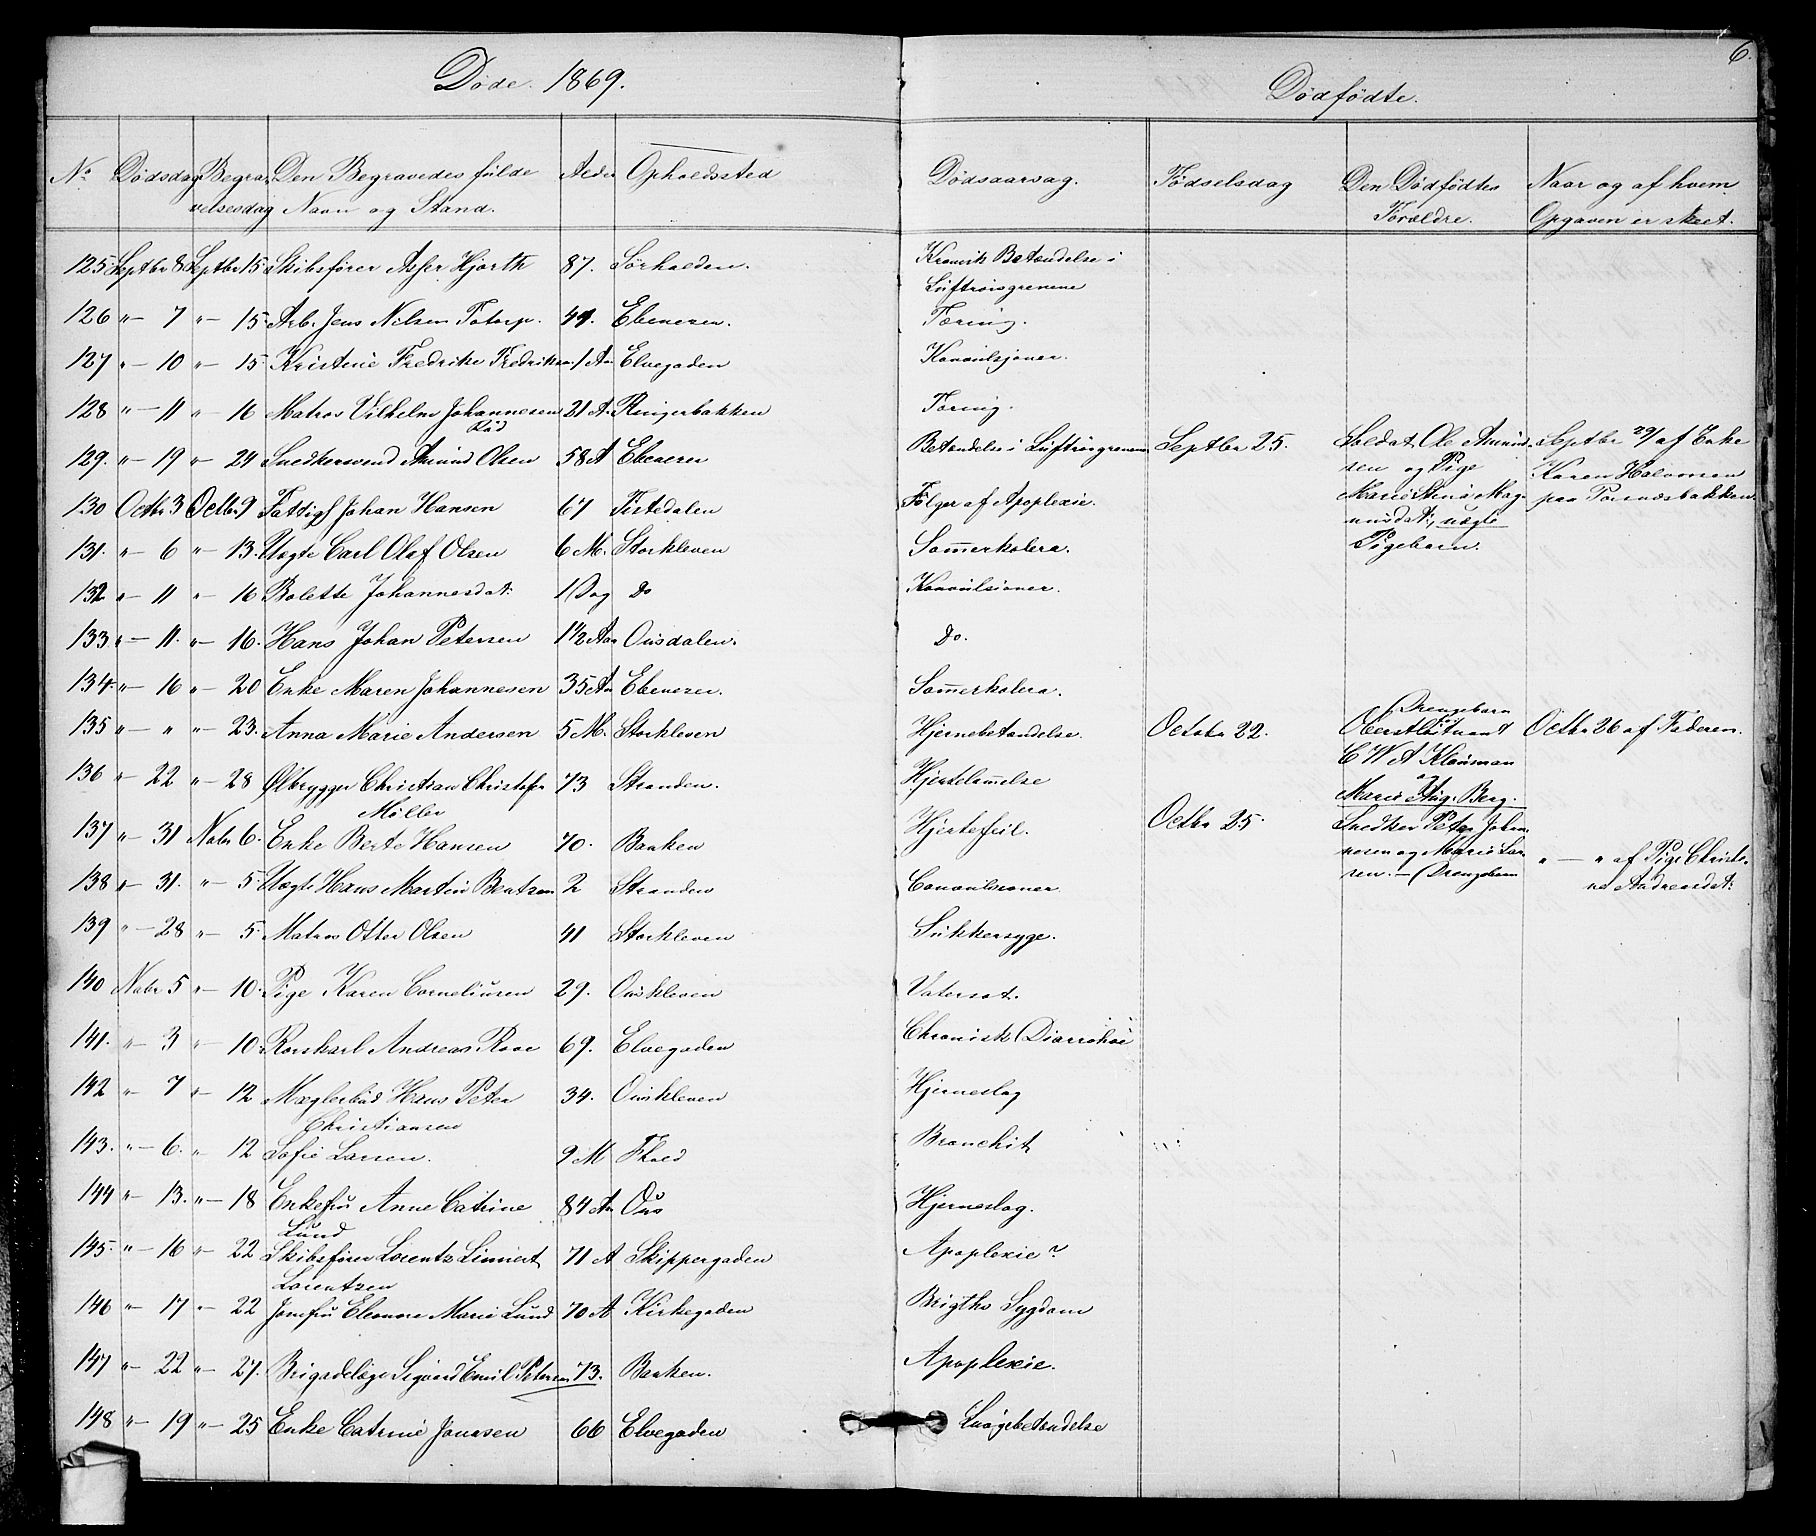 6.
Døde. 1869.
Dødfødte.
No Dødsdag Begravelsesdag Den Begravedes fulde Navn og Stand. Alder Opholdssted Dødsaarsag. Fødselsdag Den Dødfødtes Forældre. Naar og af hvem Opgaven er skeet.
125 Septbr 8 Septbr 15 Skibsfører Asser Hjorth 87. Sørhalden. Kronisk Betændelse i Luftrørsgrenene
126 " — 7 " — 15 Arb. Jens Nilsen Totorp. 49. Ebenezer. Tæring.
127 " — 10 " — 15 Kristine Fredrike Fredriksen 1 Aar Elvegaden Konvulsjoner.
128 " — 11 " — 16 Matros Vilhelm Johannesen Rød 21 A. Ringerbakken Tæring.
129. " — 19 " — 24 Snedkersvend Amund Olsen 58 A Ebenezer Betændelse i Luftrørsgrenene Septbr 25. Soldat Ole Amundsen og Pige Marie Stine Magnusdat:, uægte Pigebarn. Septbr 29/ af Enke Karen Halvorsen paa Porsnæsbakken
130 Octbr 3 Octbr 9 Fattigf Johan Hansen 67 Tistedalen Følger af Apoplexie.
131. " — 6 " — 13. Uægte Carl Olaf Olsen 6 M. Storkleven Sommerkolera.
132 " — 11 " — 16 Bolette Johannesdat: 1 Dag Do Konvulsioner.
133 " — 11. " — 16. Hans Johan Petersen 1 1/2 Aar Ousdalen. Do.
134. " — 16 " — 20 Enke Maren Johannesen 35 Aar Ebenezer. Sommerkolera.
135 " — " " — 23. Anna Marie Andersen 5 M. Storkleven Hjernebetændelse. Octobr 22. Drengebarn Oberstløitnant C W A Klouman og Marie Aug. Berg. Octbr 26 af Faderen.
136 " — 22 " — 28 Ølbrygger Christian Christofer Møller 73 Stranden. Hjertelammelse
137 " — 31 Novbr 6. Enke Berte Hansen 70. Banken Hjertefeil. Octbr 25. Snedker Peter Johannesen og Marie Larsen. — (Drengebarn " — " af Pige Christine Andreasdat:
138 " — 31. " — 5 Uægte Hans Martin Berntsen 2 Stranden Convulsioner.
139 " — 28 " — 5 Matros Otter Olsen 41 Storkleven Sukkersyge.
140 Novbr 5 " — 10. Pige Karen Corneliusen 29. Ovikleven Vatersot.
141. " — 3 " — 10. Korskarl Andreas Roar 69. Elvegaden Chronisk Diarrohoe
142 " — 7 " — 12 Mæglerbud Hans Peter Christiansen 34. Ovikleven Hjerneslag
143. " — 6. " — 12 Sofie Larsen. 9 M Bronchit
144 " — 13. " — 18 Enkefru Anne Catrine Lund 84 Aar Ous Hjerneslag.
145. " — 16 " — 22 Skibsfører Lorentz Linnert Lorentzen 71 A Skippergaden Apoplexie?
146 " — 17 " — 22 Jomfru Eleonore Marie Lund 70 A Kirkegaden Brigths Sygdom
147 " — 22 " — 27. Brigadelæge Sigvard Emil Petersen 73. Banken. Apoplexie.
148 " — 19 " — 25 Enke Catrine Jonassen 66 Elvegaden Lungebetændelse